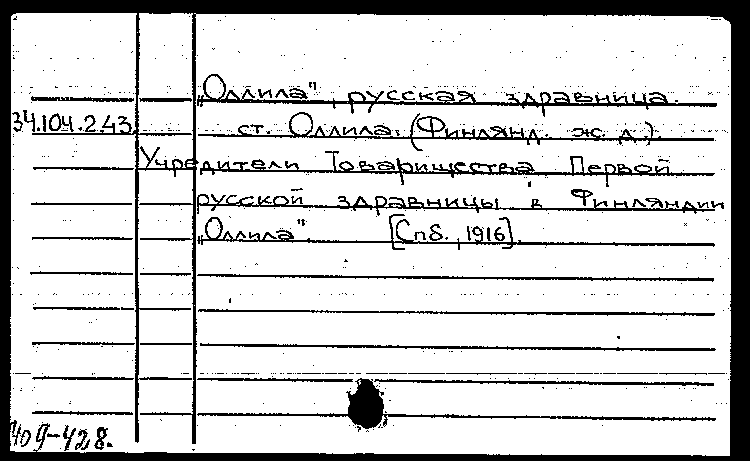 „Оллила", русская здравница.
34.104.2.43.
ст. Оллила. (Финлянд. ж. д.).
Учредители Товарищества Первой
русской здравницы в Финляндии
„Оллила". [Спб., 1916].
409-428.